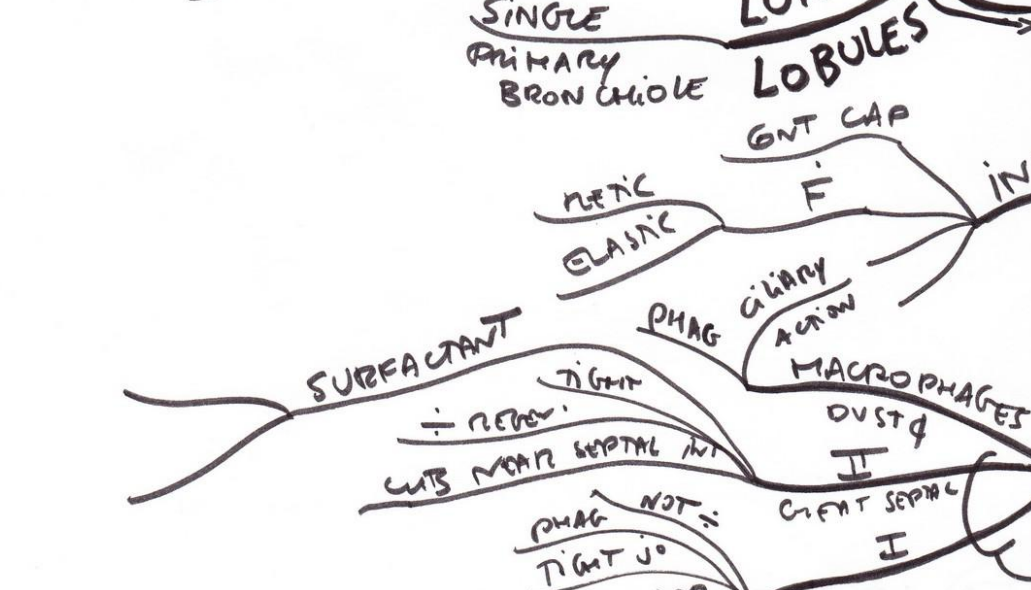 SINGLE
PRIMARY
BRONCHIOLE
LOBULES
CONT CAP
F
RETIC
ELASTIC
CILIARY
ACTION
PHAG
MACROPHAGES
DUST
SURFACTANT
TIGHT
÷ REGEN.
NEAR SEPTAL INT
II
GREAT SEPTAL
I
NOT ÷
PHAG
TIGHT Jo